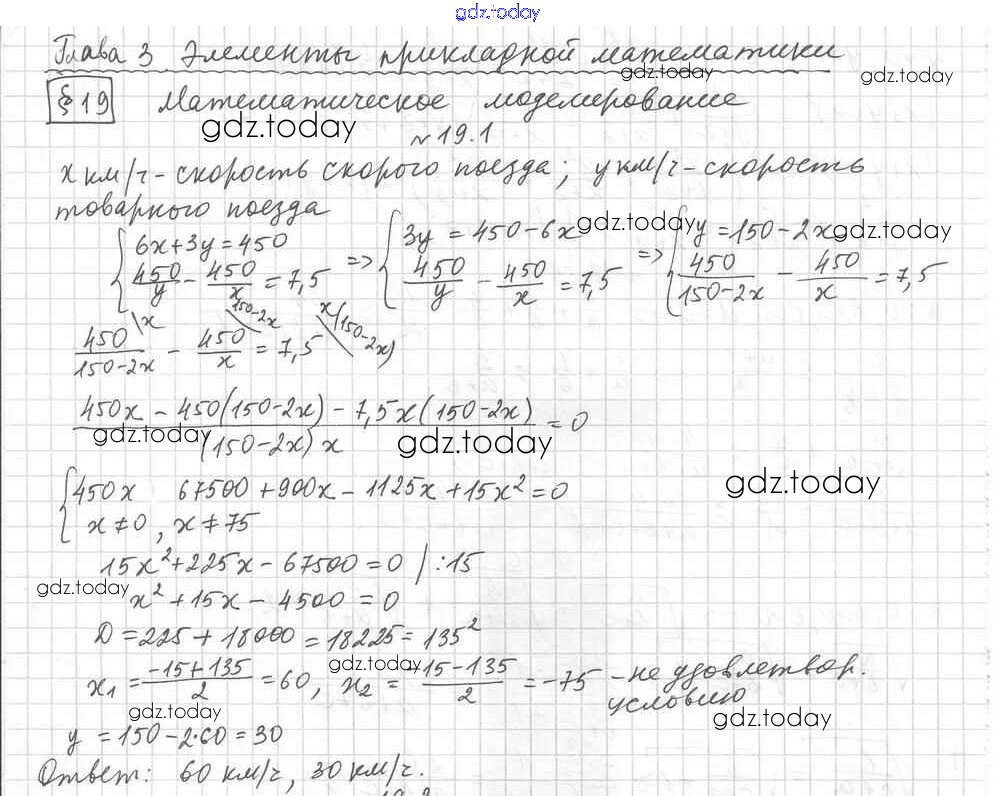 gdz.today
Глава 3 Элементы прикладной математики
gdz.today gdz.today
§ 19 Математическое моделирование
gdz.today
№ 19.1
x км/ч - скорость скорого поезда; y км/ч - скорость
товарного поезда
gdz.today gdz.today
{ 6x + 3y = 450 => { 3y = 450 - 6x => { y = 150 - 2x
450/y - 450/x = 7,5 450/y - 450/x = 7,5 450/(150-2x) - 450/x = 7,5
450/(150-2x) \x - 450/x \150-2x = 7,5 \x(150-2x)
(450x - 450(150-2x) - 7,5x(150-2x))/((150-2x)x) = 0
gdz.today gdz.today
{ 450x 67500 + 900x - 1125x + 15x² = 0
gdz.today
x ≠ 0, x ≠ 75
15x² + 225x - 67500 = 0 | :15
gdz.today
x² + 15x - 4500 = 0
D = 225 + 18000 = 18225 = 135²
gdz.today
x₁ = (-15+135)/2 = 60, x₂ = (-15-135)/2 = -75 - не удовлетвор.
условию
gdz.today gdz.today
y = 150 - 2·60 = 30
Ответ: 60 км/ч, 30 км/ч.